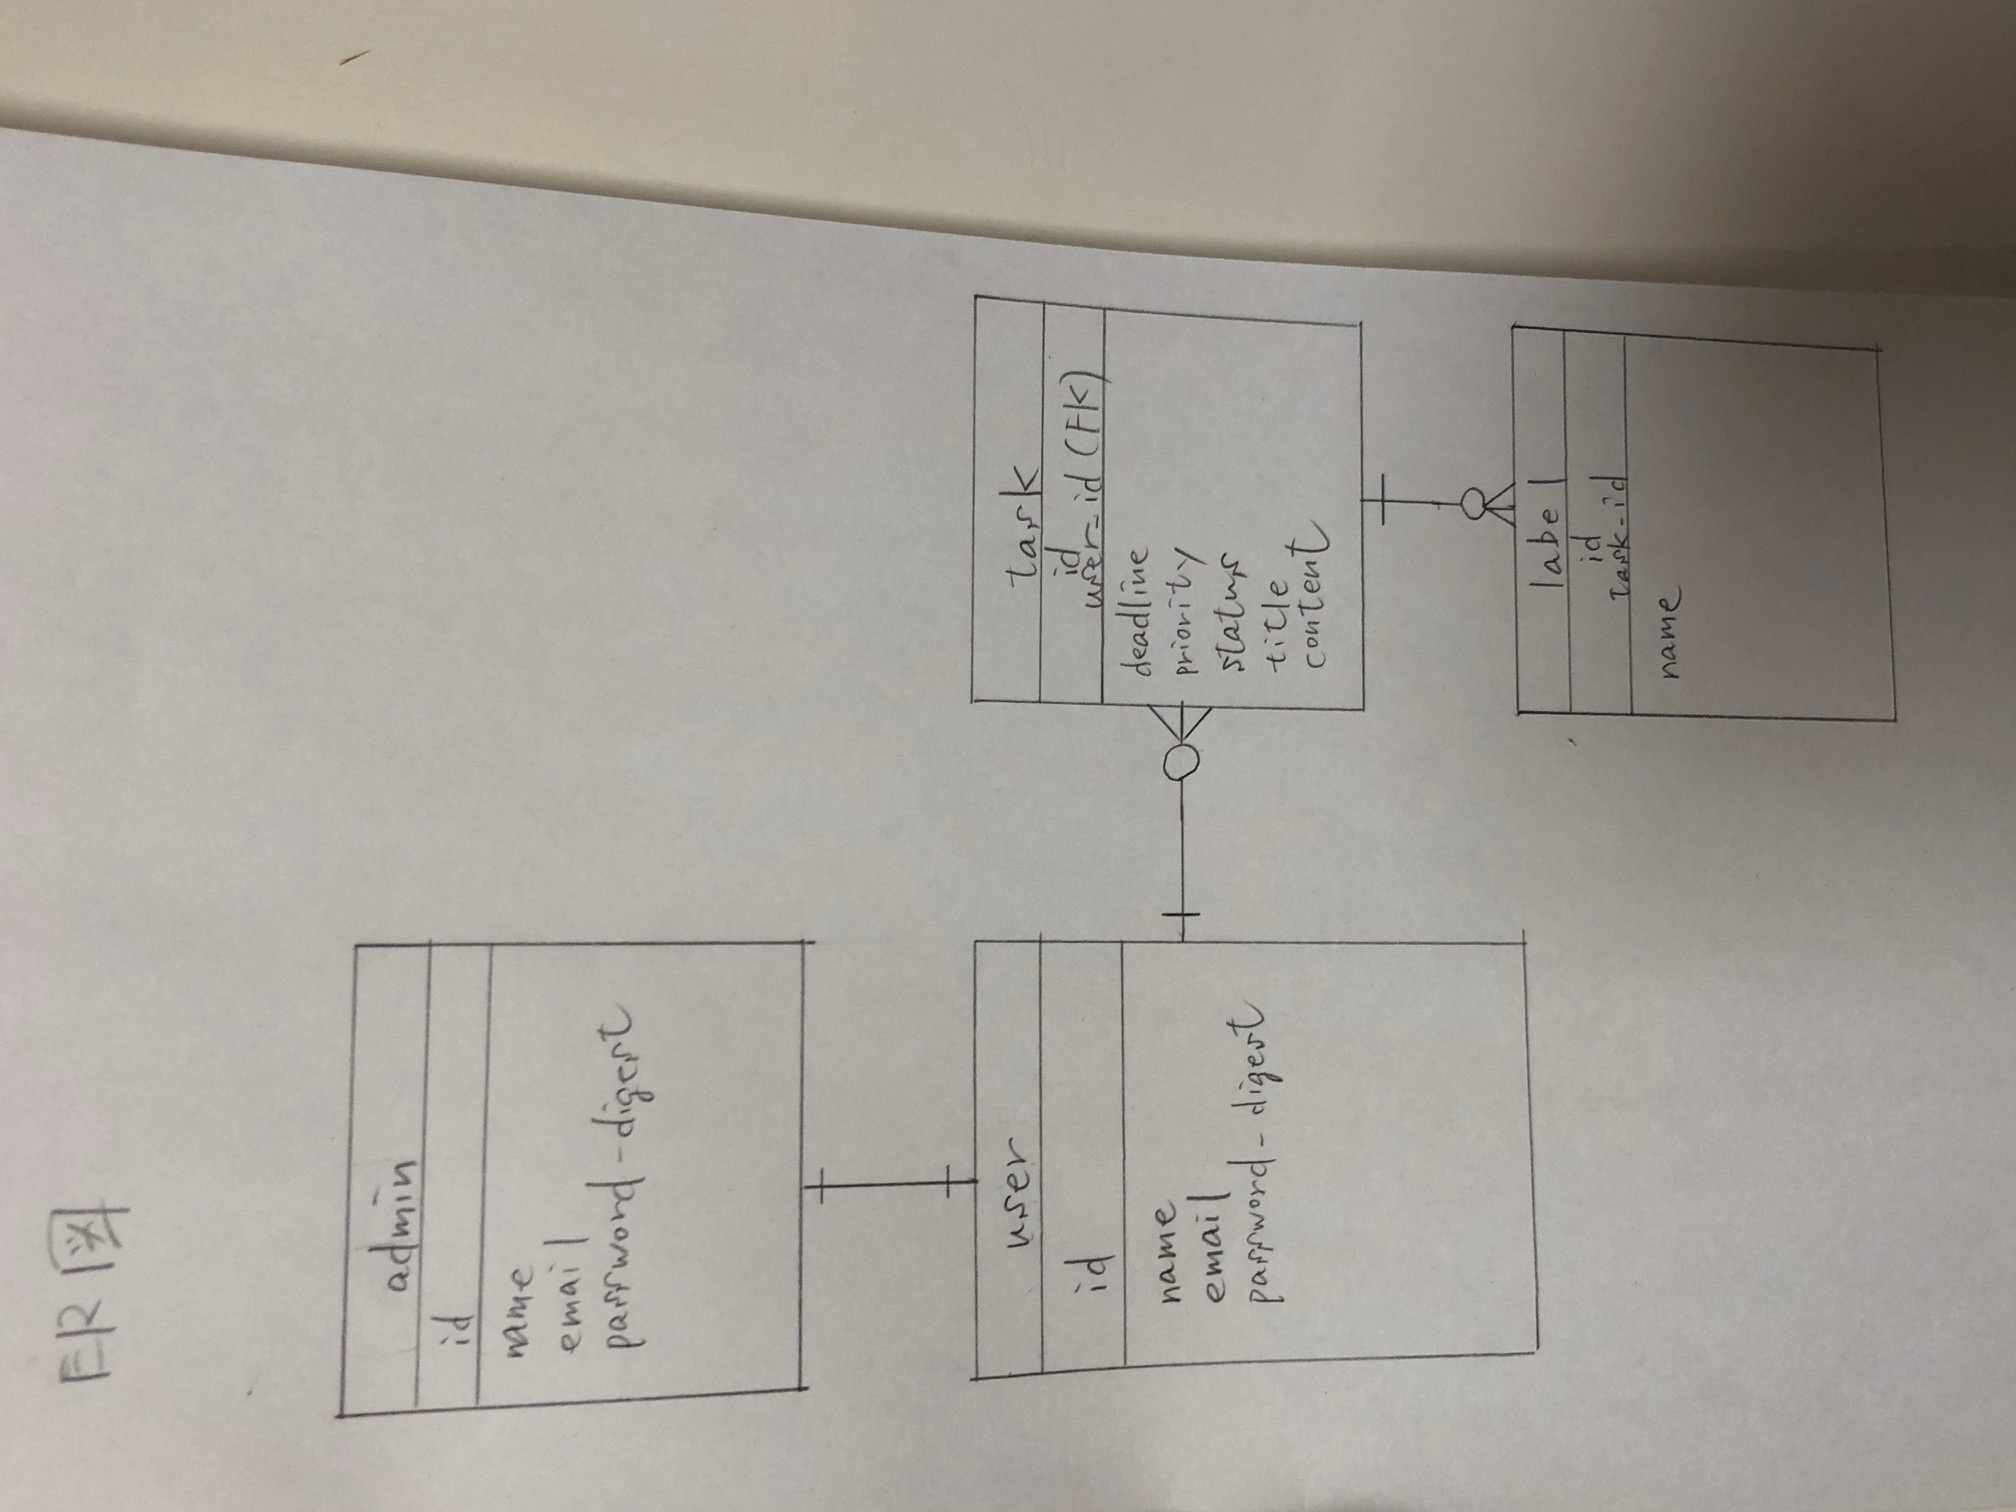 ER図
admin
id
name
email
password-digest
user
id
name
email
password-digest
task
id
user-id (FK)
deadline
priority
status
title
content
label
id
task-id
name